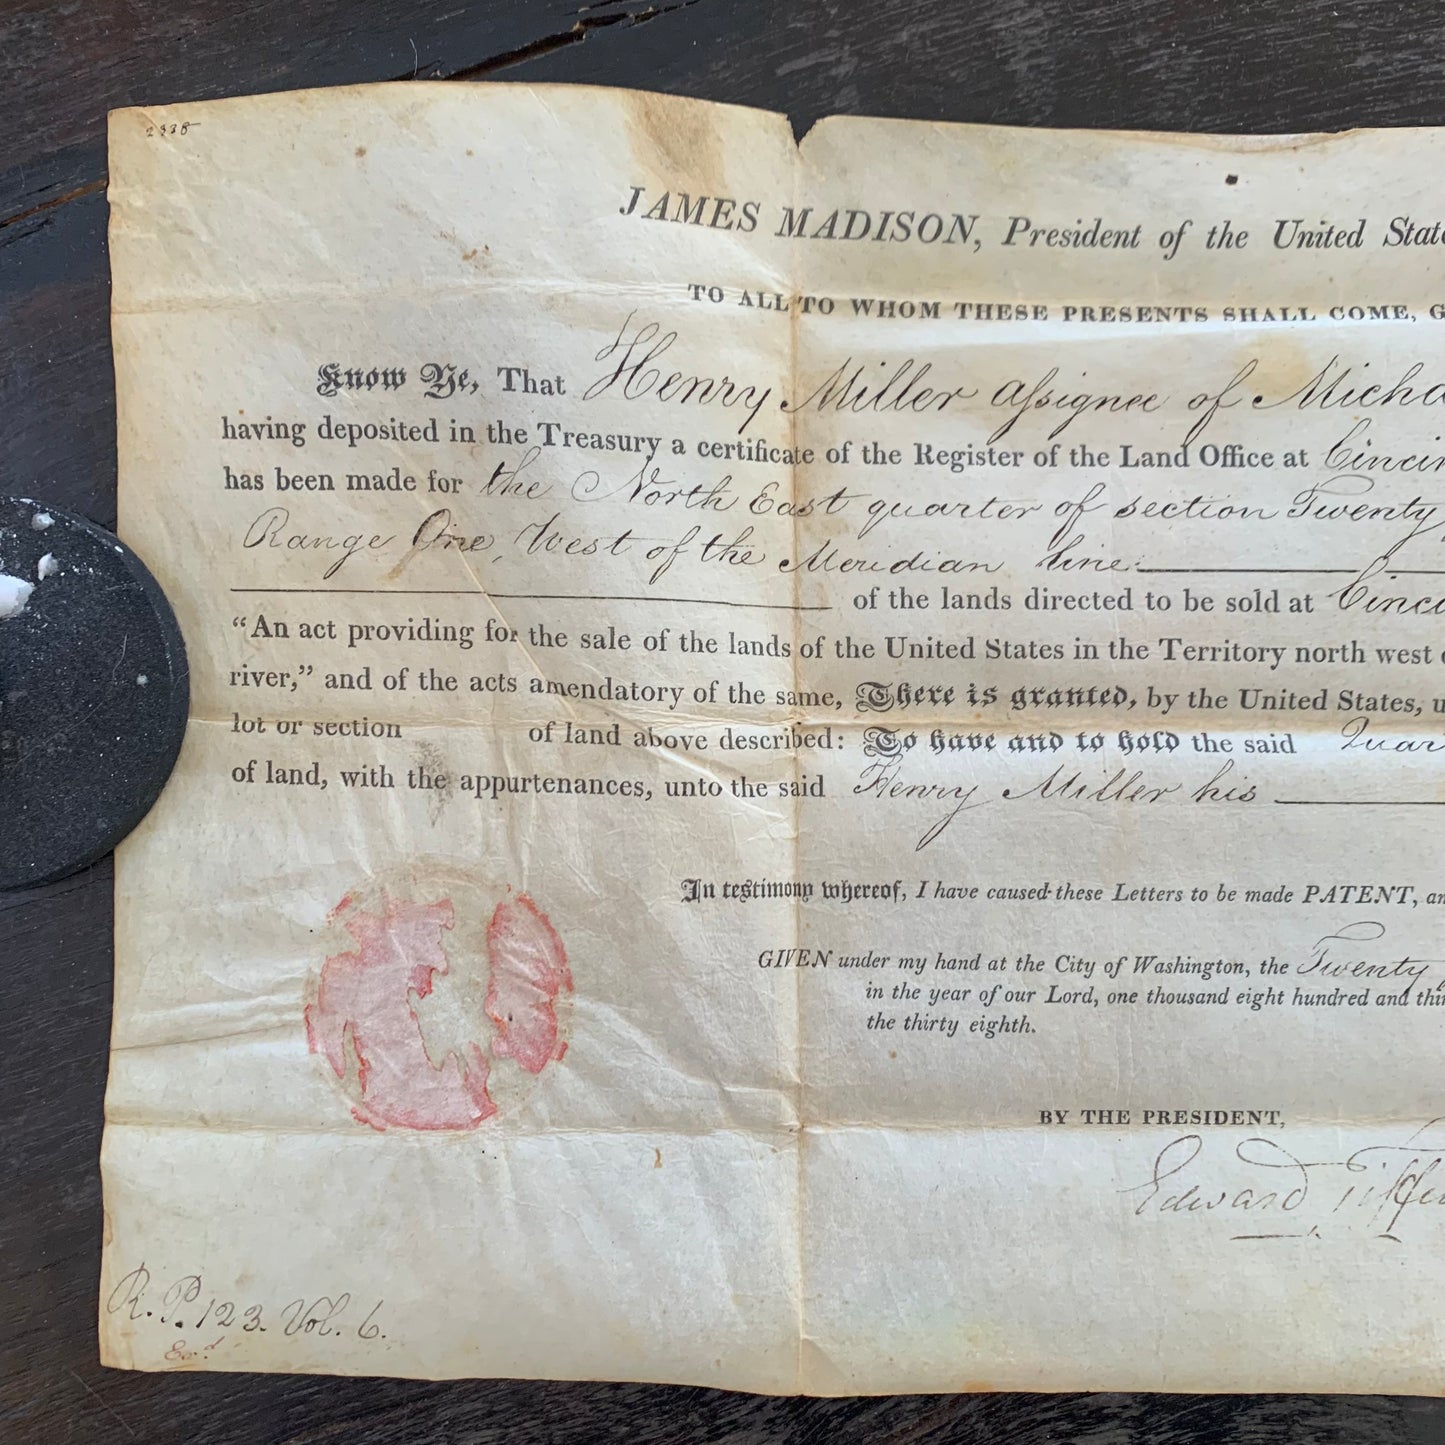 2338
JAMES MADISON, President of the United State
TO ALL TO WHOM THESE PRESENTS SHALL COME, G
Know Ye, That Henry Miller assignee of Micha
having deposited in the Treasury a certificate of the Register of the Land Office at Cincin
has been made for the North East quarter of section Twenty
Range One, West of the Meridian line
of the lands directed to be sold at Cinci
“An act providing for the sale of the lands of the United States in the Territory north west o
river,” and of the acts amendatory of the same, There is granted, by the United States, u
lot or section of land above described: To have and to hold the said Quar
of land, with the appurtenances, unto the said Henry Miller his
In testimony whereof, I have caused these Letters to be made PATENT, an
GIVEN under my hand at the City of Washington, the Twenty
in the year of our Lord, one thousand eight hundred and thir
the thirty eighth.
BY THE PRESIDENT,
Edward Tiffin
R. P. 123. Vol. 6.
Exd.